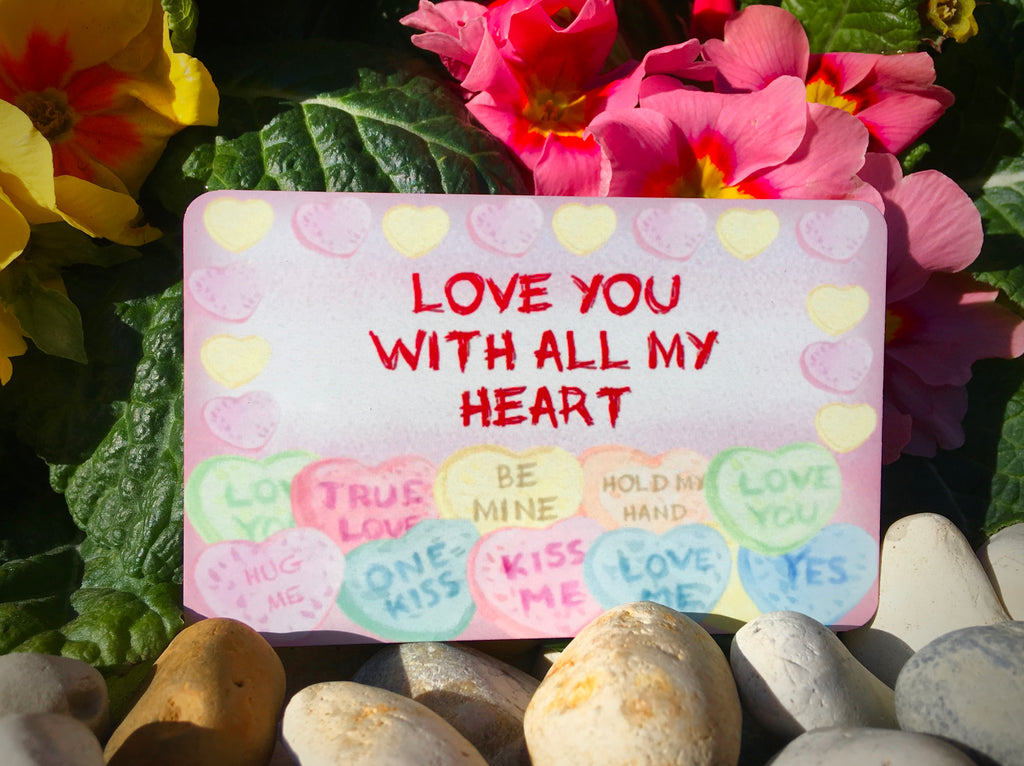 LOVE YOU
WITH ALL MY
HEART
LOV
YO
TRUE
LOVE
BE
MINE
HOLD MY
HAND
LOVE
YOU
HUG
ME
ONE
KISS
KISS
ME
LOVE
ME
YES